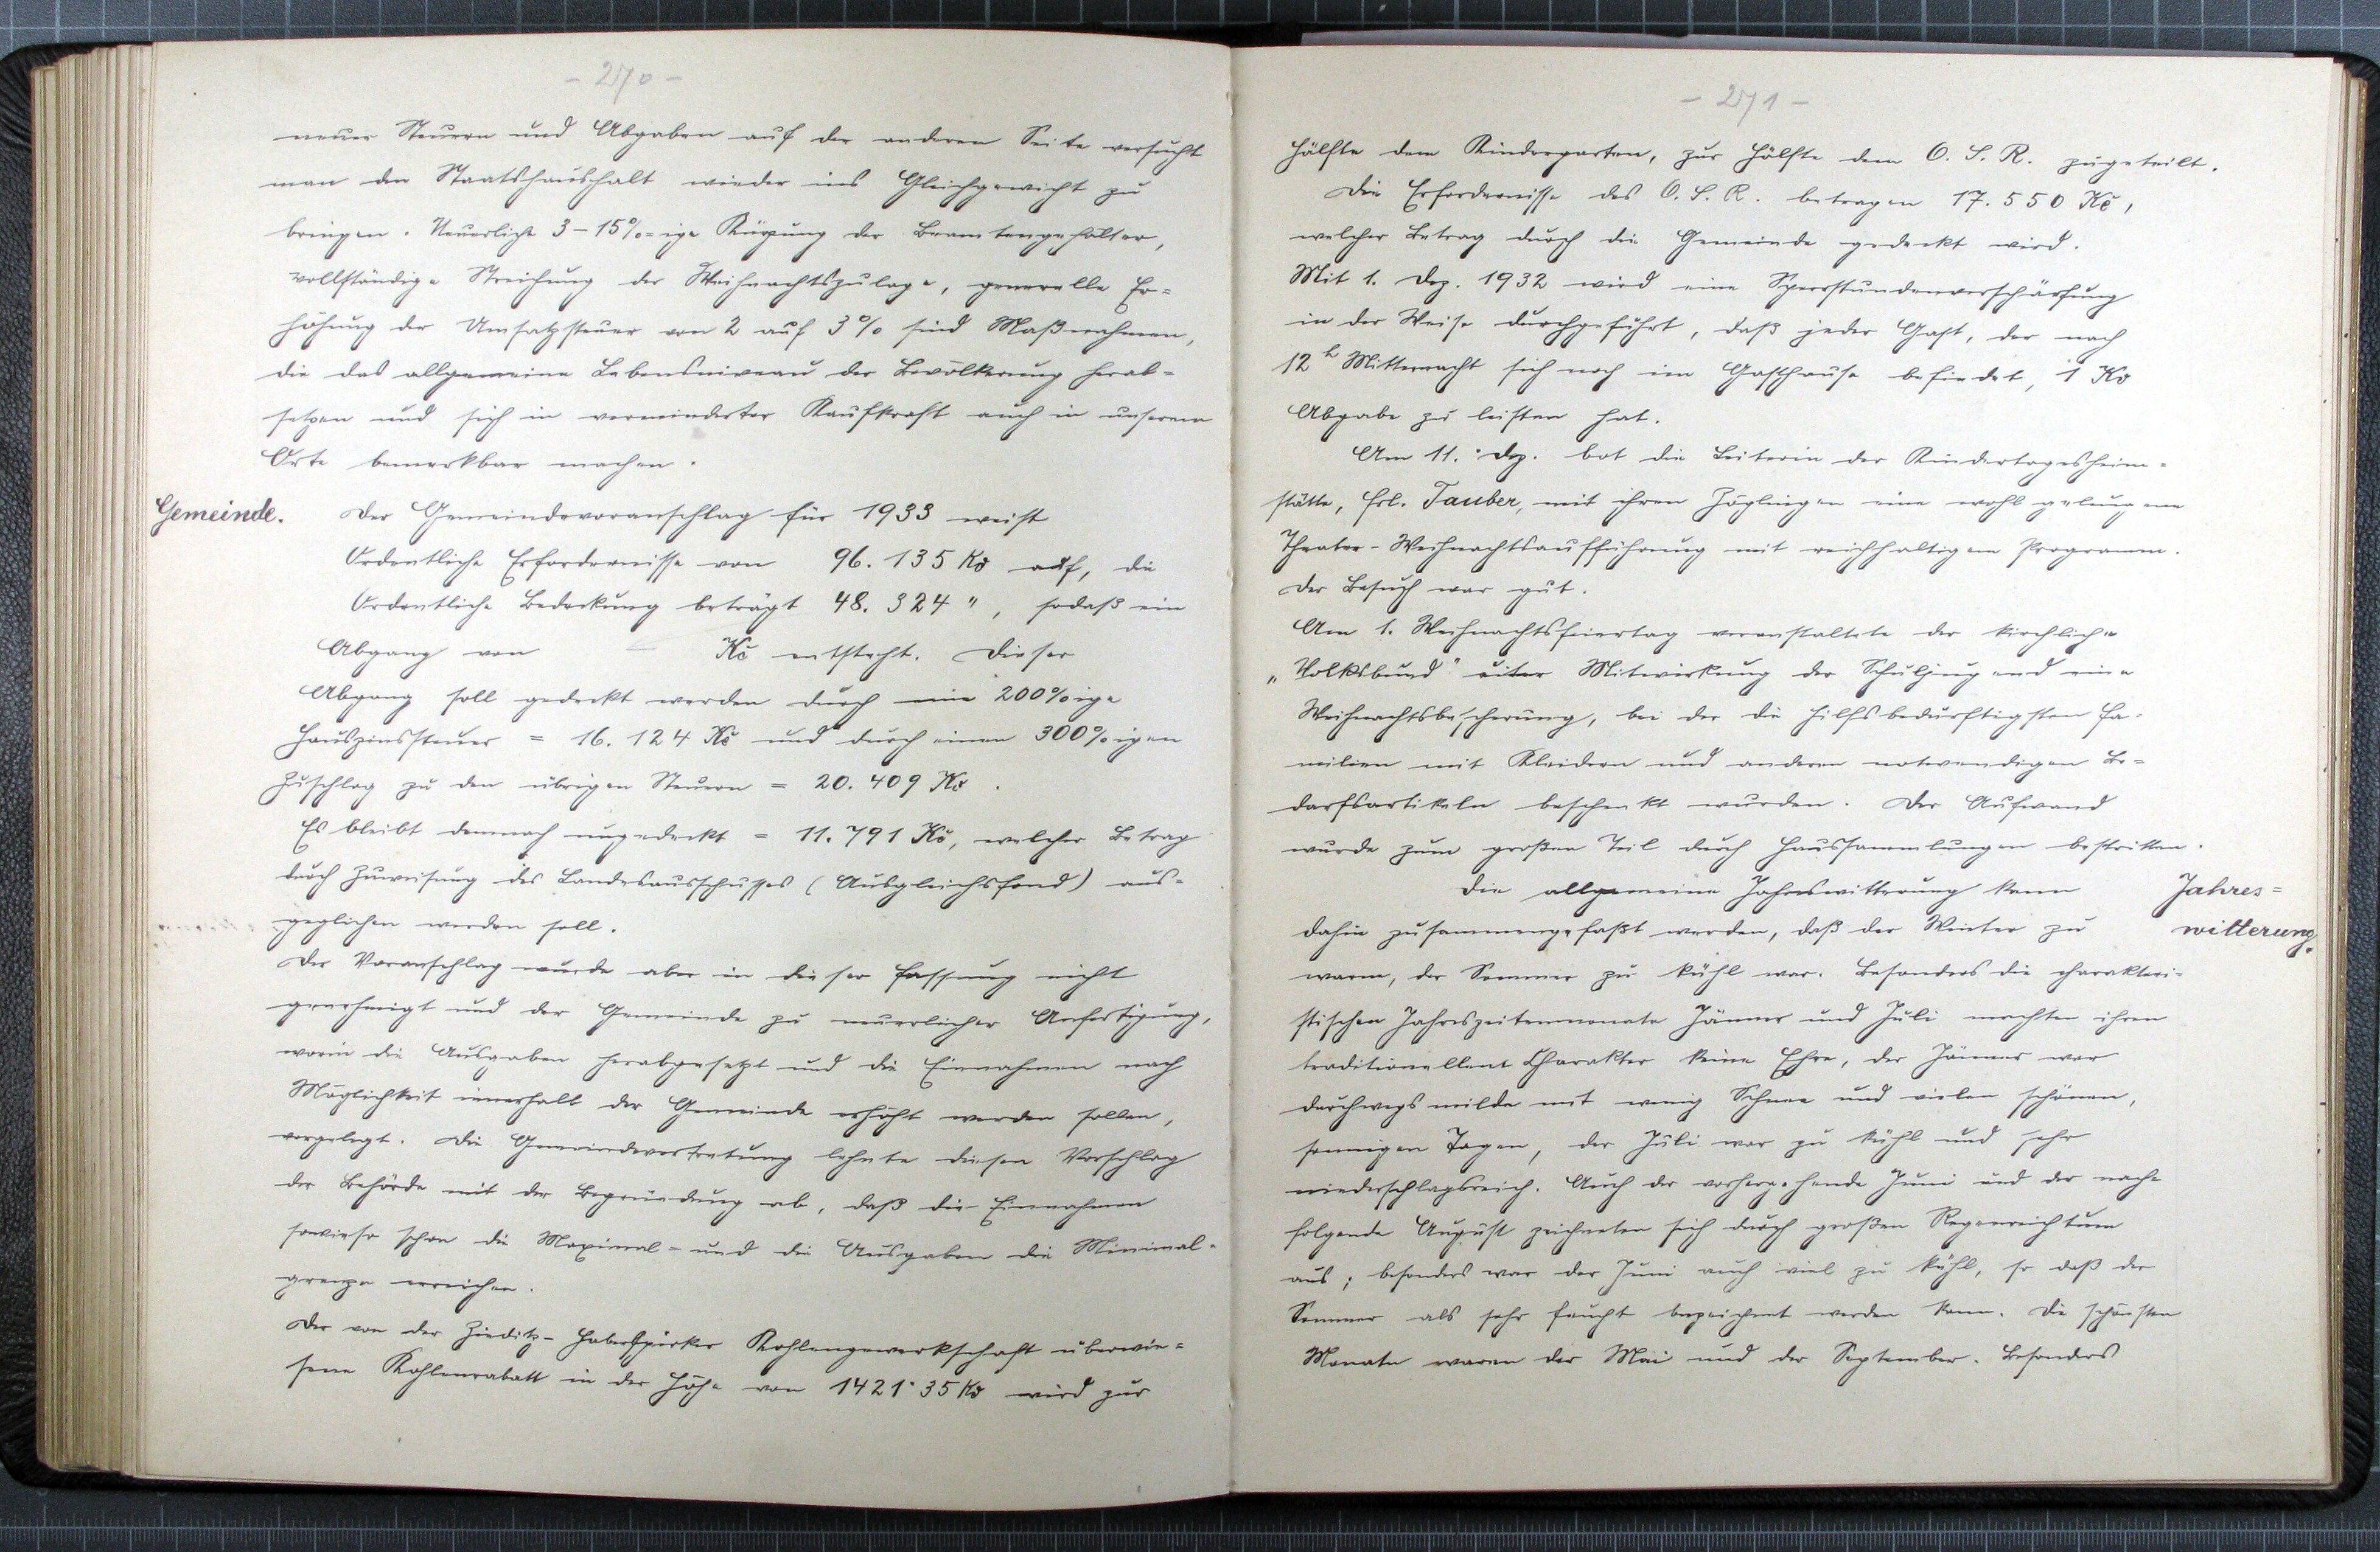 - 270 -
neuer Steuern und Abgaben auf der anderen Seite versucht
man den Staatshaushalt wieder ins Gleichgewicht zu
bringen. Neuerliche 3-15%=ige Kürzung der Beamtengehälter,
vollständige Streichung der Weihnachtszulage, generelle Er=
höhung der Umsatzsteuer von 2 auf 3% sind Maßnahmen,
die das allgemeine Lebensniveau der Bevölkerung herab-
setzen und sich in verminderter Kaufkraft auch in unserem
Orte bemerkbar machen.
Gemeinde. Der Gemeindevoranschlag für 1933 weist
Ordentliche Erfordernisse von 96.135 Kč auf, die
Ordentliche Bedeckung beträgt 48.324 ", sodaß ein
Abgang von Kč entsteht. Dieser
Abgang soll gedeckt werden durch eine 200%ige
Hauszinssteuer = 16.124 Kč und durch einen 300%igen
Zuschlag zu den übrigen Steuern = 20.409 Kč.
Es bleibt demnach ungedeckt = 11.791 Kč, welcher Betrag
durch Zuweisung des Landesausschusses (Ausgleichsfond) aus=
geglichen werden soll.
Der Voranschlag wurde aber in dieser Fassung nicht
genehmigt und der Gemeinde zu neuerlicher Anfertigung,
worin die Ausgaben herabgesetzt und die Einnahmen nach
Möglichkeit innerhalb der Gemeinde erhöht werden sollen,
vorgelegt. Die Gemeindevertretung lehnte diesen Vorschlag
der Behörde mit der Begründung ab, daß die Einnahmen
sowieso schon die Maximal- und die Ausgaben die Minimal-
grenze erreichen.
Der von der Zieditz-Haberspirker Kohlengewerkschaft überwie=
sene Kohlenrabatt in der Höhe von 1421·35 Kč wird zur
- 271 -
Hälfte dem Kindergarten, zur Hälfte dem O.S.R. zugeteilt.
Die Erfordernisse des O.S.R. betragen 17.550 Kč,
welcher Betrag durch die Gemeinde gedeckt wird.
Mit 1. Dez. 1932 wird eine Sperrstundenverschärfung
in der Weise durchgeführt, daß jeder Gast, der nach
12h Mitternacht sich noch im Gasthause befindet, 1 Kč
Abgabe zu leisten hat.
Am 11. Dez. bot die Leiterin der Kindertagesheim=
stätte, Frl. Tauber, mit ihren Zöglingen eine wohl gelungene
Theater-Weihnachtsaufführung mit reichhaltigem Programm.
Der Besuch war gut.
Am 1. Weihnachtsfeiertag veranstaltete der kirchliche
„Volksbund" unter Mitwirkung der Schuljugend eine
Weihnachtsbescherung, bei der die hilfsbedürftigsten Fa-
milien mit Kleidern und anderen notwendigen Be=
darfsartikeln beschenkt wurden. Der Aufwand
wurde zum großen Teil durch Haussammlungen bestritten.
Die allgemeine Jahreswitterung kann Jahres=
dahin zusammengefaßt werden, daß der Winter zu witterung.
warm, der Sommer zu kühl war. Besonders die charakteri-
stischen Jahreszeitenmonate Jänner und Juli machten ihrem
traditionellem Charakter keine Ehre, der Jänner war
durchwegs milde mit wenig Schnee und vielen schönen,
sonnigen Tagen, der Juli war zu kühl und sehr
niederschlagsreich. Auch der vorhergehende Juni und der nach-
folgende August zeichneten sich durch großen Regenreichtum
aus; besonders war der Juni auch viel zu kühl, so daß der
Sommer als sehr feucht bezeichnet werden kann. Die schönsten
Monate waren der Mai und der September. Besonders